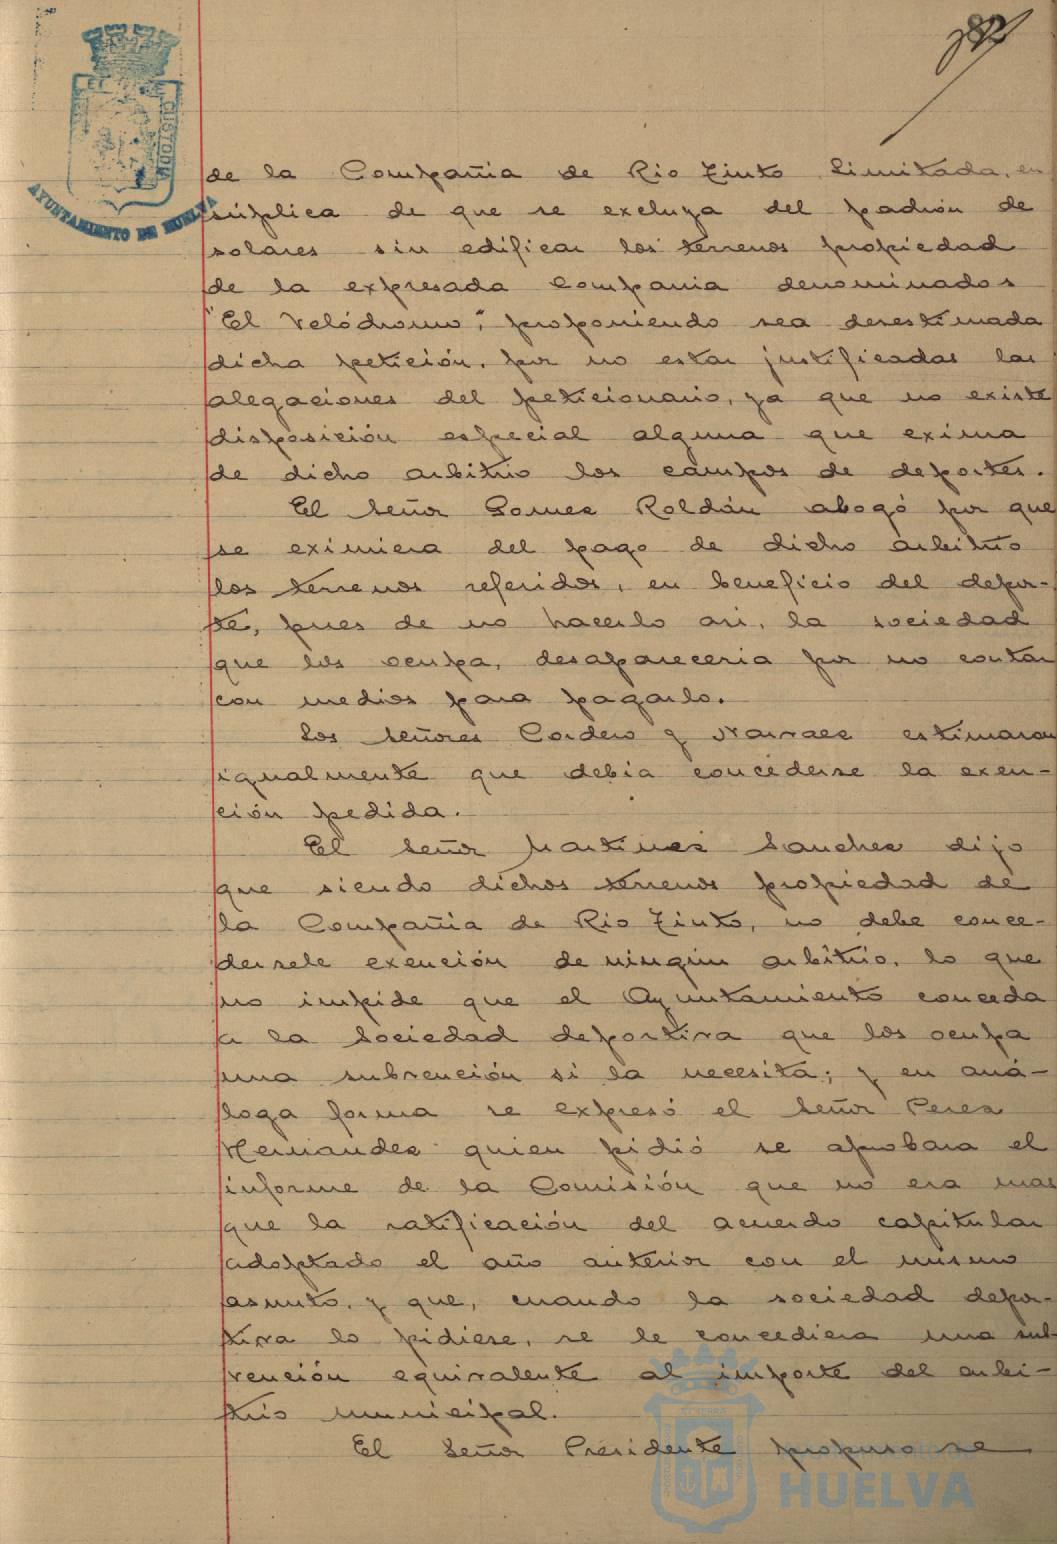 82
CUSTODIA
AYUNTAMIENTO DE HUELVA
de la Compañia de Rio Tinto Limitada, en
súplica de que se excluya del padrón de
solares sin edificar los terrenos propiedad
de la expresada Compania denominados
"El Velódromo", proponiendo sea desestimada
dicha petición, por no estar justificadas las
alegaciones del peticionario, ya que no existe
disposición especial alguna que exima
de dicho arbitrio los campos de deportes.
El Señor Gomez Roldán abogó por que
se eximiera del pago de dicho arbitrio
los terrenos referidos, en beneficio del depor-
te, pues de no hacerlo asi, la sociedad
que los ocupa, desapareceria por no contar
con medios para pagarlo.
Los Señores Cordero y Narvaez estimaron
igualmente que debia concederse la exen-
ción pedida.
El Señor Martinez Sanchez dijo
que siendo dichos terrenos propiedad de
la Compañia de Rio Tinto, no debe conce-
dersele exención de ningún arbitrio, lo que
no impide que el Ayuntamiento conceda
a la Sociedad deportiva que los ocupa
una subvención si la necesita; y en aná-
loga forma se expresó el Señor Perez
Hernandez quien pidió se aprobara el
informe de la Comisión que no era mas
que la ratificación del acuerdo capitular
adoptado el año anterior con el mismo
asunto, y que, cuando la sociedad depor-
tiva lo pidiese, se le concediera una sub-
vención equivalente al importe del arbi-
trio municipal.
El Señor Presidente propuso se
HUELVA